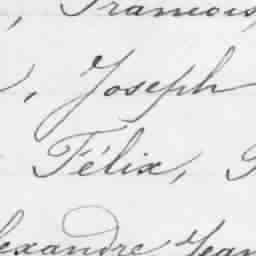 , Francois,
, Joseph
Félix,
lexandre Jean